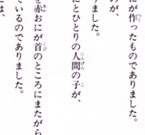 にが作ったものでありました。
が、
ました。
とひとりの人間の子が、
を赤おにが首のところにまたがら
ているのでありました。